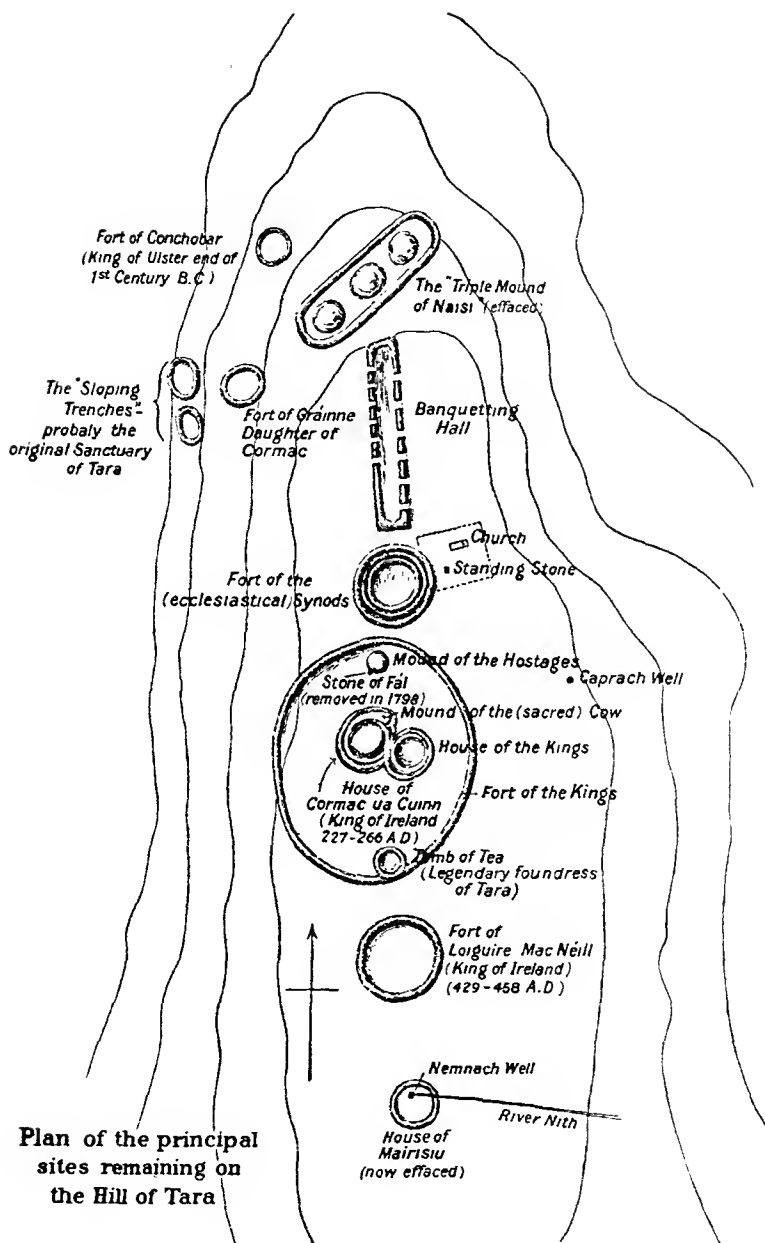 Fort of Conchobar
(King of Ulster end of
1st Century B.C)
The "Triple Mound
of Naisi" (effaced)
The "Sloping
Trenches"-
probaly the
original Sanctuary
of Tara
Fort of Gráinne
Daughter of
Cormac
Banquetting
Hall
Church
Standing Stone
Fort of the
(ecclesiastical) Synods
Mound of the Hostages
Stone of Fál
(removed in 1798)
Caprach Well
Mound of the (sacred) Cow
House of the Kings
House of
Cormac ua Cuinn
(King of Ireland
227-266 A D)
Fort of the Kings
Tomb of Tea
(Legendary foundress
of Tara)
Fort of
Loiguire Mac Néill
(King of Ireland)
(429-458 A.D)
Nemnach Well
River Nith
House of
Mairisiu
(now effaced)
Plan of the principal
sites remaining on
the Hill of Tara